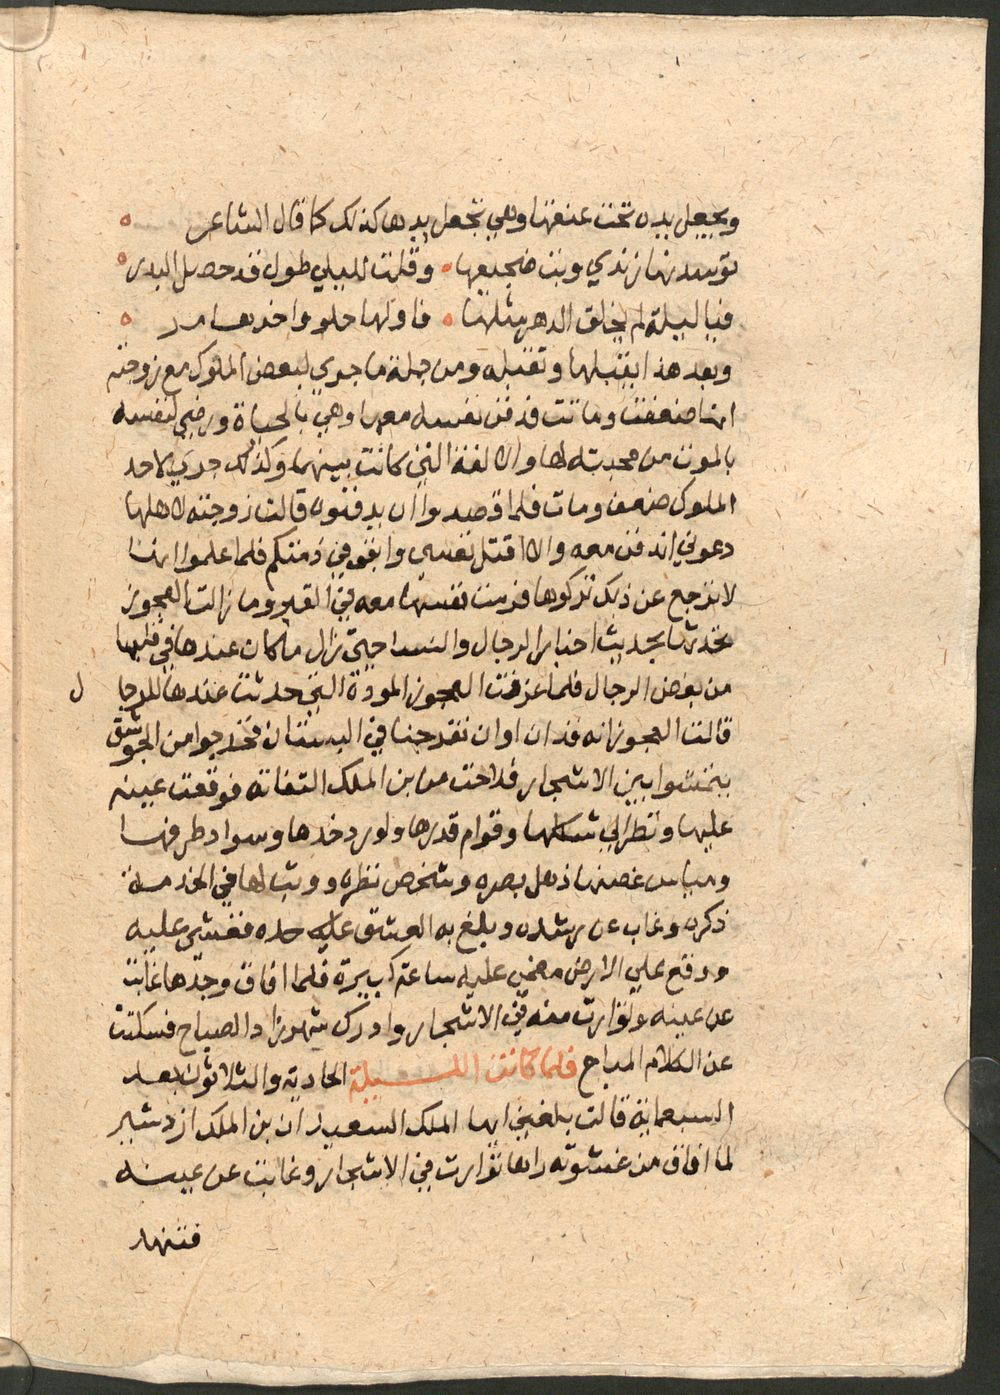 ويجعل يده تحت عنقها وهي تجعل يدها كذلك كما قال الشاعر
توسدتها زندي وبت ضجيعها وقلت لليلي طول قد حصل البدر
فيا ليلة لم يخلق الدهر مثلها فاولها حلو واخرها مر
وبعد هذا يقبلها وتقبله ومن جملة ما جري لبعض الملوك مع زوجته
انها ضعفت وماتت فدفن نفسه معها وهي بالحياة ورضي لنفسه
بالموت من محبته لها والالفة التي كانت بينهما وكذلك جري لاحد
الملوك ضعف ومات فلما قصدوا ان يدفنوه قالت زوجته لاهلها
دعوني اندفن معه والا اقتل نفسي وابقي في ذمتكم فلما علموا انها
لا ترجع عن ذلك تركوها فرمت نفسها معه في القبر وما زالت العجوز
تحدثها بحديث اخبار الرجال والنسا حتي زال ما كان عندها في قلبها
من بعض الرجال فلما عرفت العجوز المودة التي حدثت عندها للرجا ل
قالت العجوز انه قد ان اوان تفرجنا في البستان فخرجوا من الجوشق
يتمشوا بين الاشجار فلاحت من ابن الملك التفاتة فوقعت عينه
عليها ونظر الي شكلها وقوام قدرها وتورد خدها وسواد طرفها
ومياس غصنها ذهل بصره وشخص نظره ووثب لها في الخدمة
ذكره وغاب عن رشده وبلغ به العشق عليه حده فغشي عليه
ووقع علي الارض مغمي عليه ساعة كبيرة فلما افاق وجدها غابت
عن عينه وتوارت منه في الاشجار وادرك شهرزاد الصباح فسكتت
عن الكلام المباح فلما كانت الليلة الحادية والثلاثون بعد
السبعماية قالت بلغني ايها الملك السعيد ان بن الملك ازدشير
لما افاق من غشوته راها توارت في الاشجار وغابت عن عينه
فتنهد